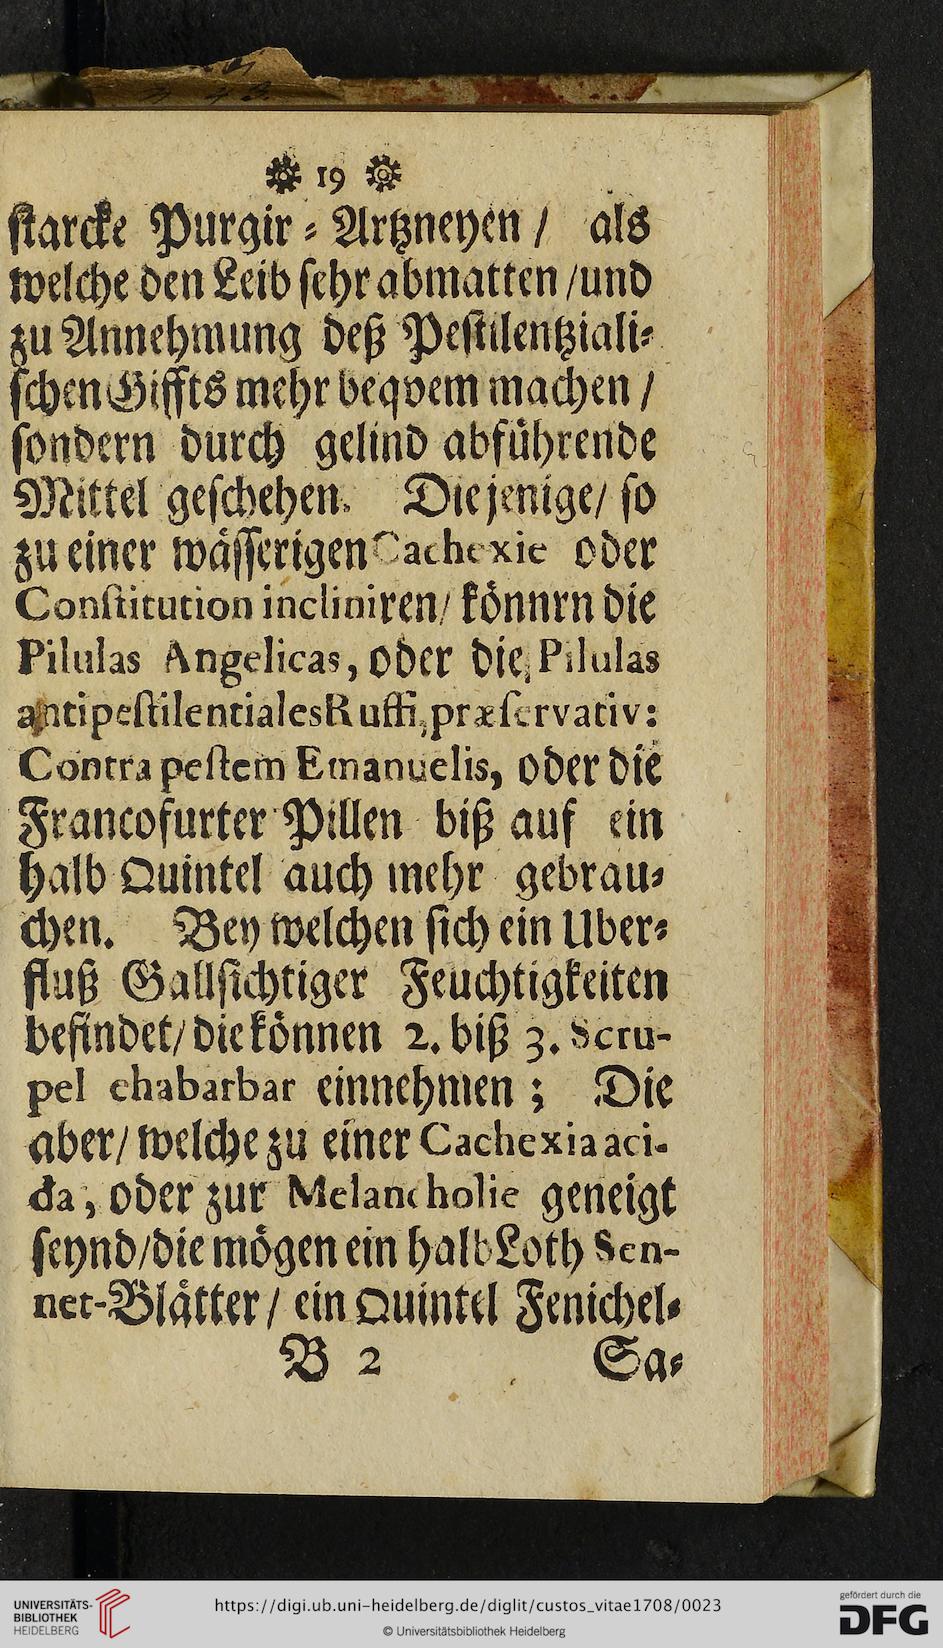 19
ſtarcke Purgir⸗Artzneyen / als
welche den Leib ſehr abmatten / und
zu Annehmung deß Peſtilentziali⸗
ſchen Giffts mehr beqvem machen /
ſondern durch gelind abführende
Mittel geſchehen. Diejenige / ſo
zu einer wäſſerigen Cachexie oder
Conſtitution incliniren / könnrn die
Pilulas Angelicas, oder die Pilulas
antipeſtilentiales Ruffi, præſervativ:
Contra peſtem Emanuelis, oder die
Francofurter Pillen biß auf ein
halb Quintel auch mehr gebrau⸗
chen. Bey welchen ſich ein Uber⸗
fluß Gallſichtiger Feuchtigkeiten
befindet / die können 2. biß 3. Scru-
pel ehabarbar einnehmen ; Die
aber / welche zu einer Cachexia aci-
da, oder zur Melancholie geneigt
ſeynd / die mögen ein halb Loth Sen-
net-Blätter / ein Quintel Fenichel⸗
B 2 Sa⸗
UNIVERSITÄTS-
BIBLIOTHEK
HEIDELBERG
https://digi.ub.uni-heidelberg.de/diglit/custos_vitae1708/0023
© Universitätsbibliothek Heidelberg
gefördert durch die
DFG